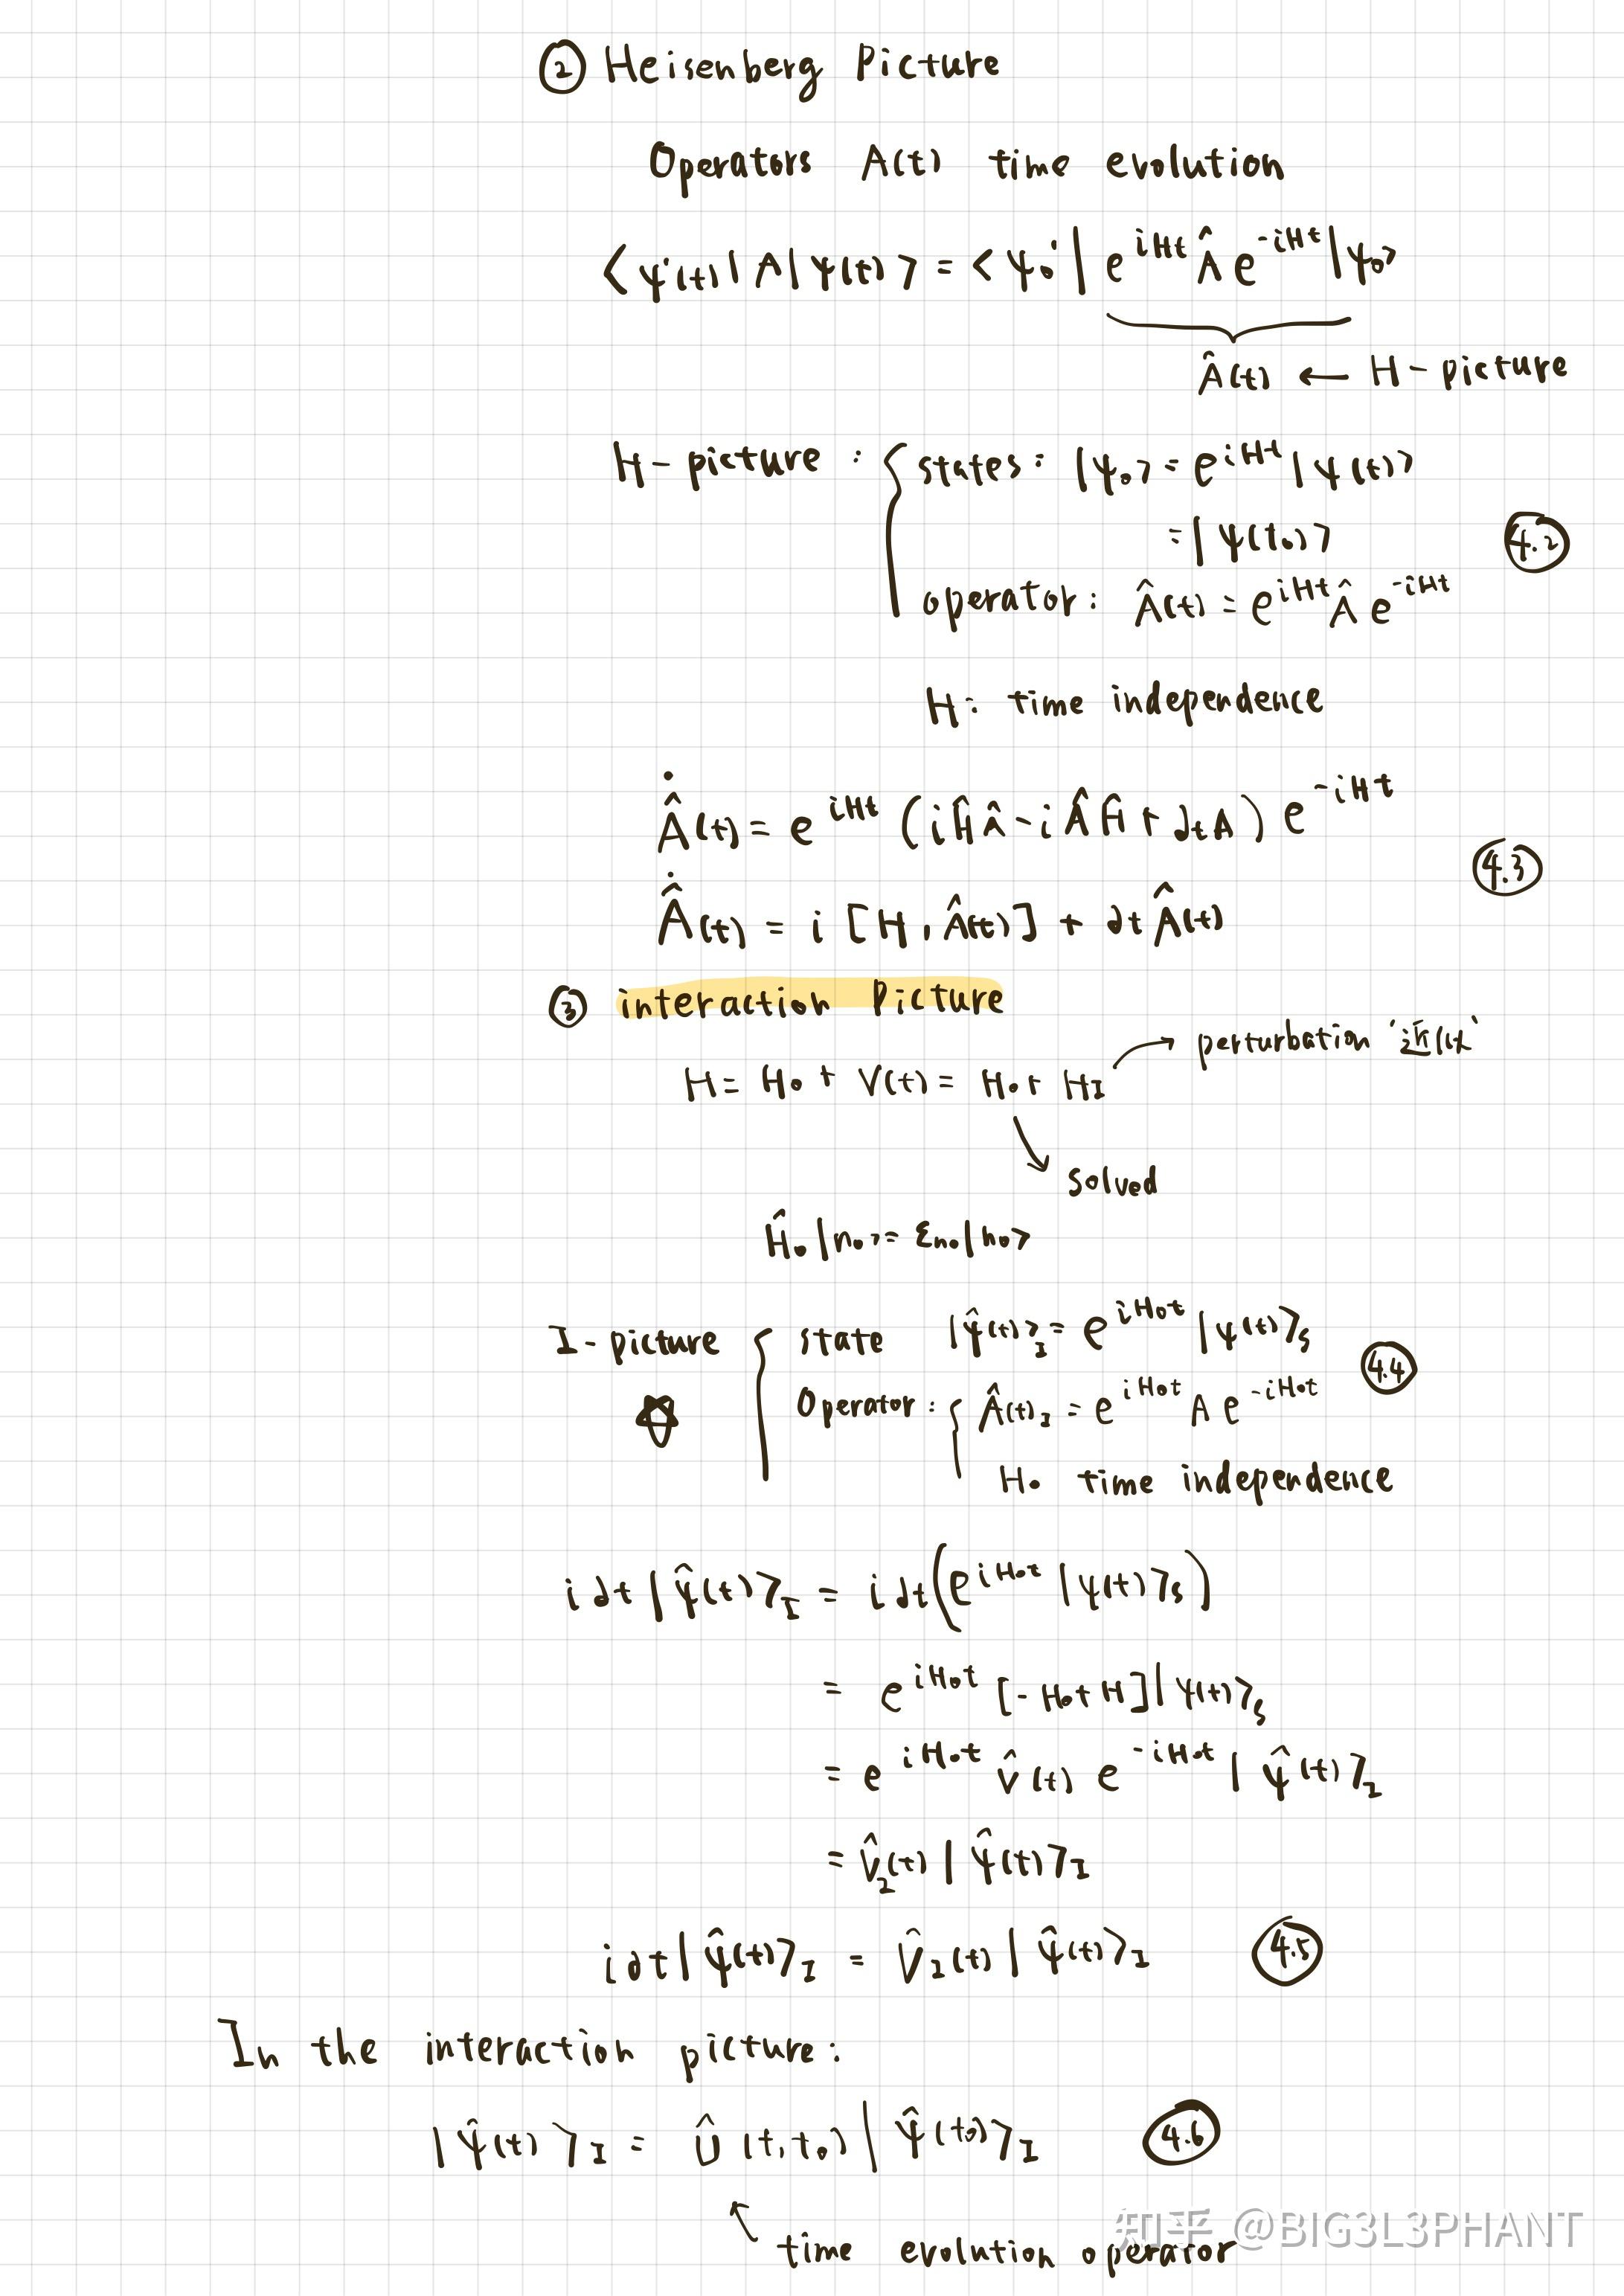 ② Heisenberg Picture
Operators A(t) time evolution
<ψ'(t)|A|ψ(t)> = <ψ₀'|e^{iHt} Â e^{-iHt}|ψ₀>
Â(t) ← H-picture
H-picture : { states: |ψ₀> = e^{iHt}|ψ(t)>
= |ψ(t₀)> 4.2
operator: Â(t) = e^{iHt} Â e^{-iHt}
H: time independence
Â̇(t) = e^{iHt} (iĤÂ - iÂĤ + ∂tA) e^{-iHt}
4.3
Â̇(t) = i [H, Â(t)] + ∂t Â(t)
③ interaction Picture
→ perturbation '近似'
H = H₀ + V(t) = H₀ + H_I
↘ solved
Ĥ₀|n₀> = ε_{n₀}|n₀>
I-picture { state |ψ̂(t)>_I = e^{iH₀t}|ψ(t)>_S
4.4
Operator: { Â(t)_I = e^{iH₀t} A e^{-iH₀t}
H₀ time independence
i∂t|ψ̂(t)>_I = i∂t(e^{iH₀t}|ψ(t)>_S)
= e^{iH₀t} [-H₀+H]|ψ(t)>_S
= e^{iH₀t} V̂(t) e^{-iH₀t}|ψ̂(t)>_I
= V̂_I(t)|ψ̂(t)>_I
i∂t|ψ̂(t)>_I = V̂_I(t)|ψ̂(t)>_I 4.5
In the interaction picture:
|ψ̂(t)>_I = Û(t,t₀)|ψ̂(t₀)>_I 4.6
↖ time evolution operator
知乎 @BIG3L3PHANT